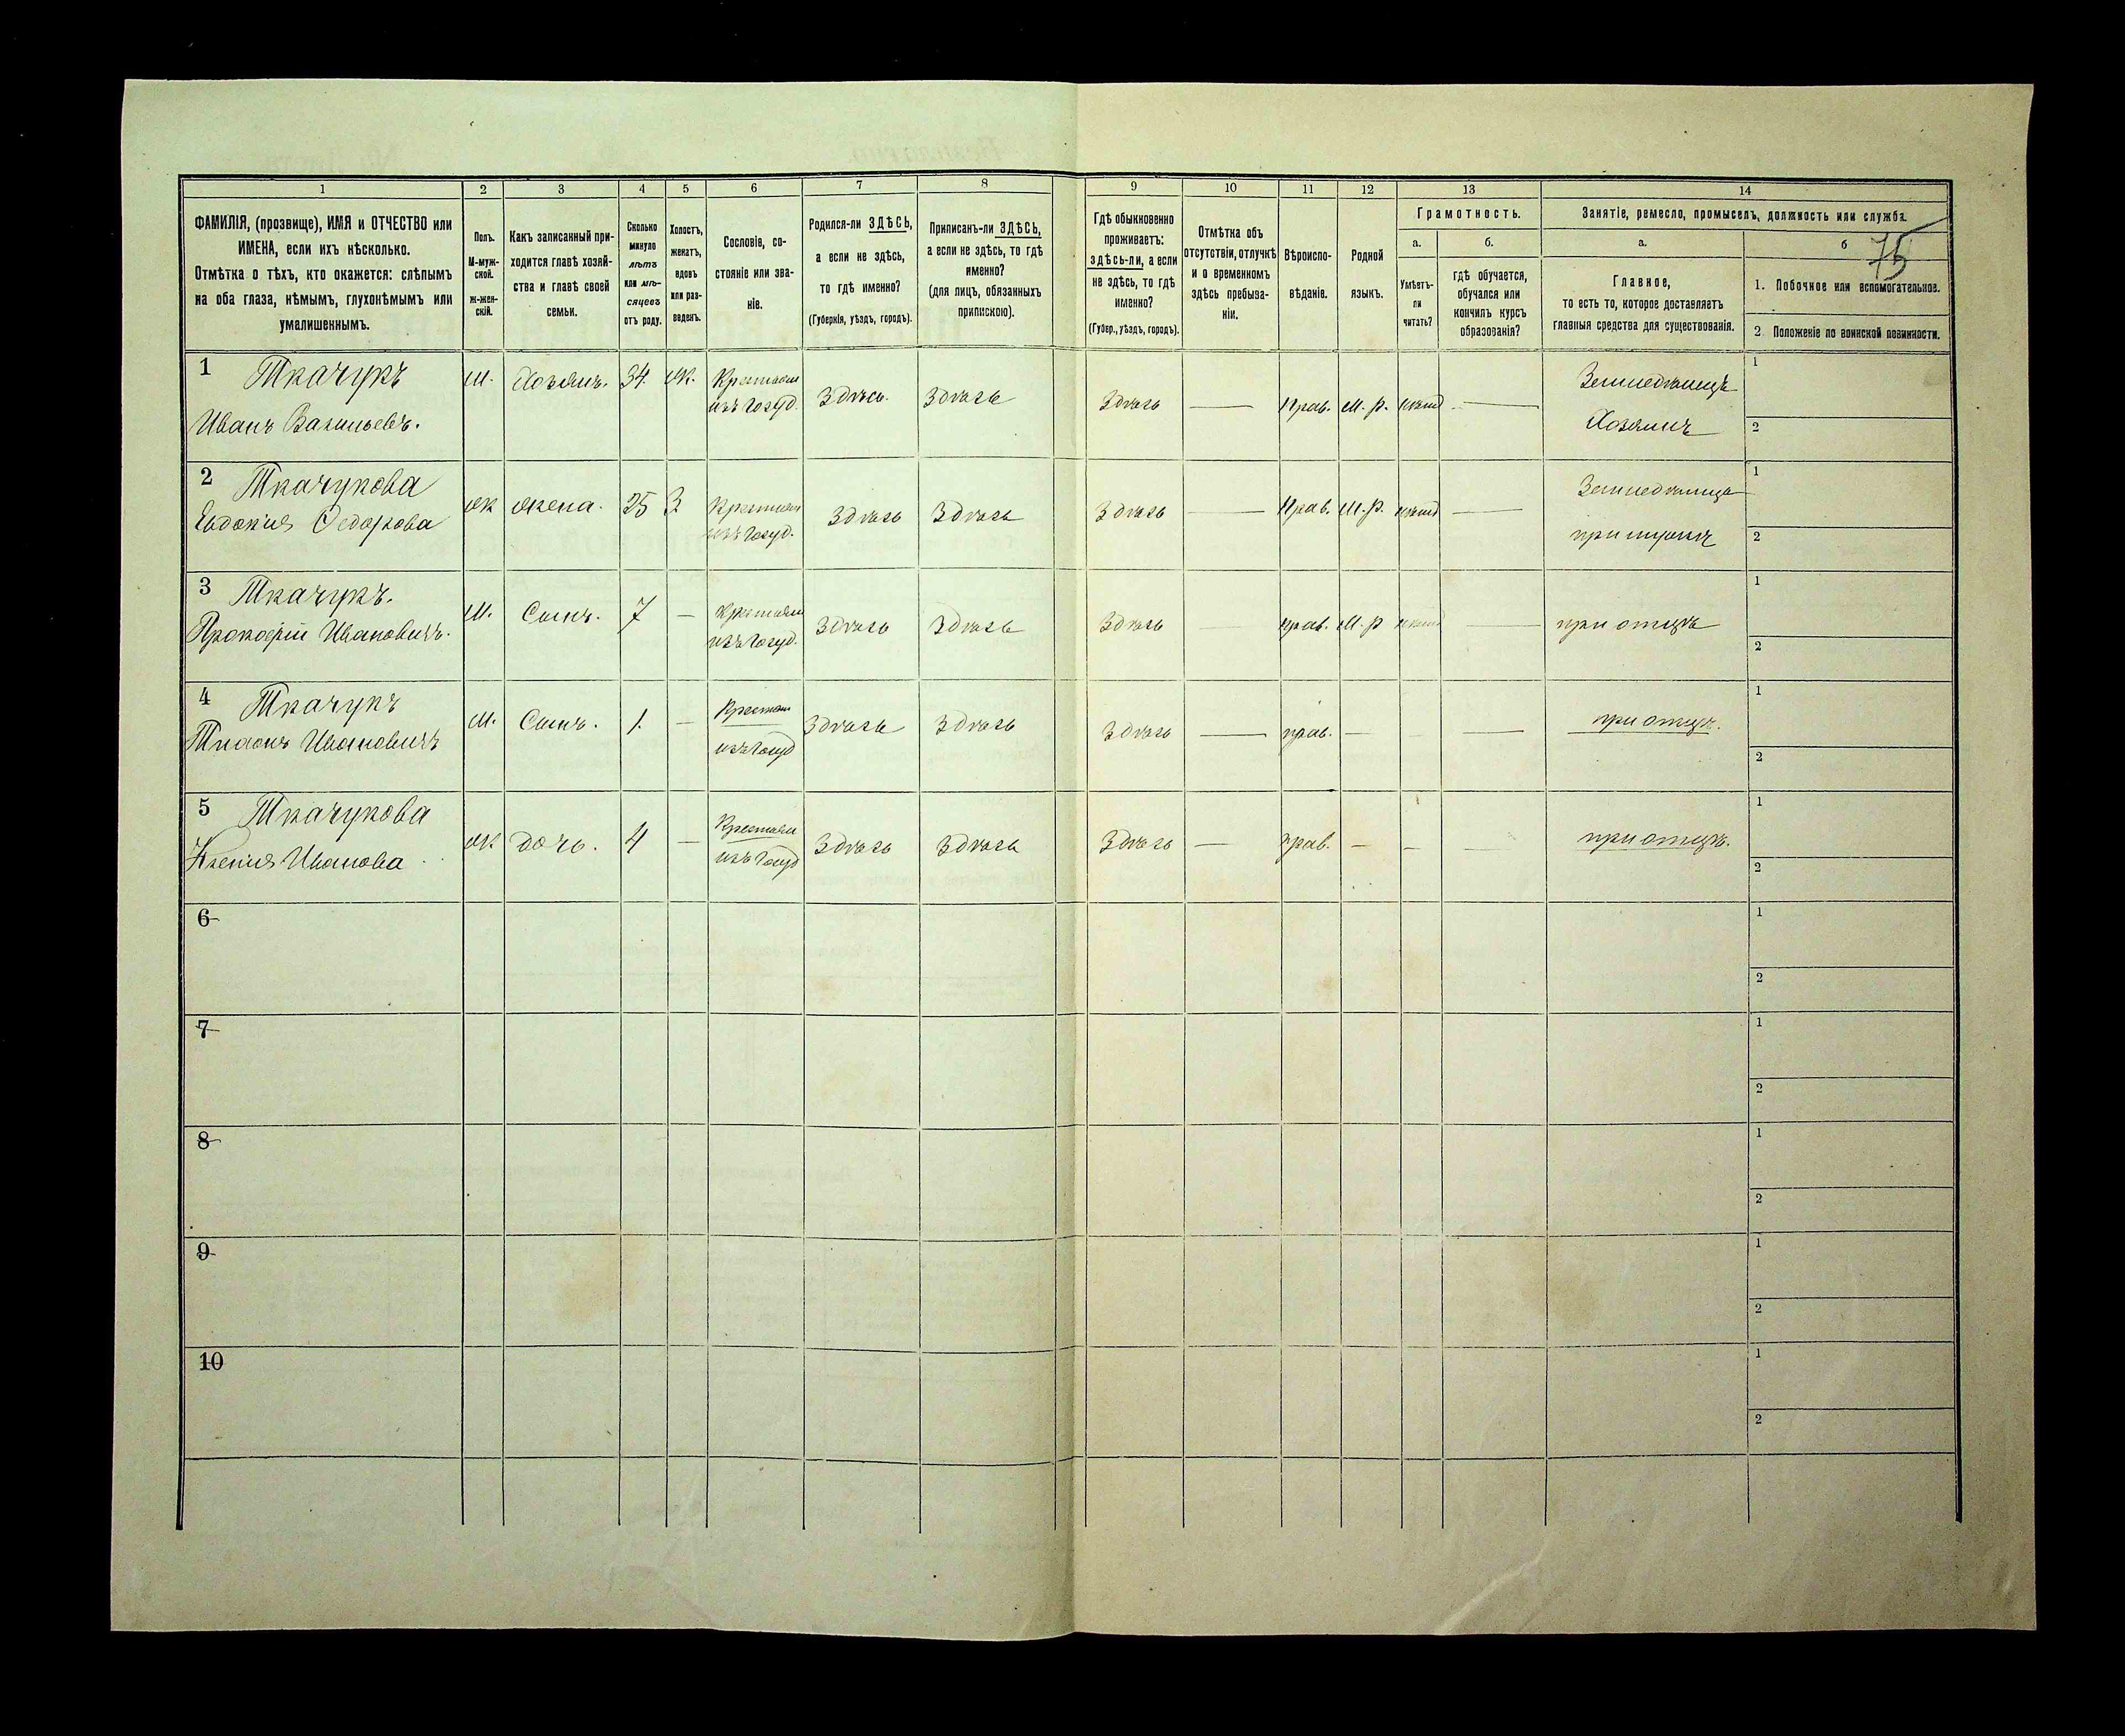 1 2 3 4 5 6 7 8 9 10 11 12 13 14
ФАМИЛІЯ, (прозвище), ИМЯ и ОТЧЕСТВО или
ИМЕНА, если ихъ нѣсколько.
Отмѣтка о тѣхъ, кто окажется: слѣпымъ
на оба глаза, нѣмымъ, глухонѣмымъ или
умалишеннымъ.
Полъ.
М-муж-
ской.
ж-жен-
скій.
Какъ записанный при-
ходится главѣ хозяй-
ства и главѣ своей
семьи.
Сколько
минуло
лѣтъ
или мѣ-
сяцевъ
отъ роду.
Холостъ,
женатъ,
вдовъ
или раз-
веденъ.
Сословіе, со-
стояніе или зва-
ніе.
Родился-ли ЗДѢСЬ,
а если не здѣсь,
то гдѣ именно?
(Губернія, уѣздъ, городъ).
Приписанъ-ли ЗДѢСЬ,
а если не здѣсь, то гдѣ
именно?
(для лицъ, обязанныхъ
припискою).
Гдѣ обыкновенно
проживаетъ:
здѣсь-ли, а если
не здѣсь, то гдѣ
именно?
(Губер., уѣздъ, городъ).
Отмѣтка объ
отсутствіи, отлучкѣ
и о временномъ
здѣсь пребыва-
ніи.
Вѣроиспо-
вѣданіе.
Родной
языкъ.
Грамотность.
а.
Умѣетъ-
ли
читать?
б.
гдѣ обучается,
обучался или
кончилъ курсъ
образованія?
Занятіе, ремесло, промыселъ, должность или служба.
а.
Главное,
то есть то, которое доставляетъ
главныя средства для существованія.
б
75
1. Побочное или вспомогательное.
2. Положеніе по воинской повинности.
1 Ткачукъ м. Хозяинъ. 34. ж. Крестьян Здѣсь. Здѣсь Здѣсь Прав. М. р. нѣтъ Земледѣлецъ 1
Иванъ Васильевъ. изъ Госуд. Хозяинъ 2
2 Ткачукова ж жена. 25 З Крестьян Здѣсь Здѣсь Здѣсь Прав. М. р. нѣтъ Земледѣлица 1
Евдокія Федорова изъ Госуд. при мужѣ 2
3 Ткачукъ. м. Сынъ. 7 — Крестьян Здѣсь Здѣсь Здѣсь прав. М. р нѣтъ при отцѣ 1
Прокофій Ивановичъ. изъ Госуд. 2
4 Ткачукъ м. Сынъ. 1. — Крестьян Здѣсь Здѣсь Здѣсь прав. — при отцѣ. 1
Ивановичъ изъ Госуд 2
5 Ткачукова ж дочь. 4 — Крестьян Здѣсь Здѣсь Здѣсь прав. — при отцѣ. 1
Ксенія Иванова изъ Госуд 2
6 1
2
7 1
2
8 1
2
9 1
2
10 1
2